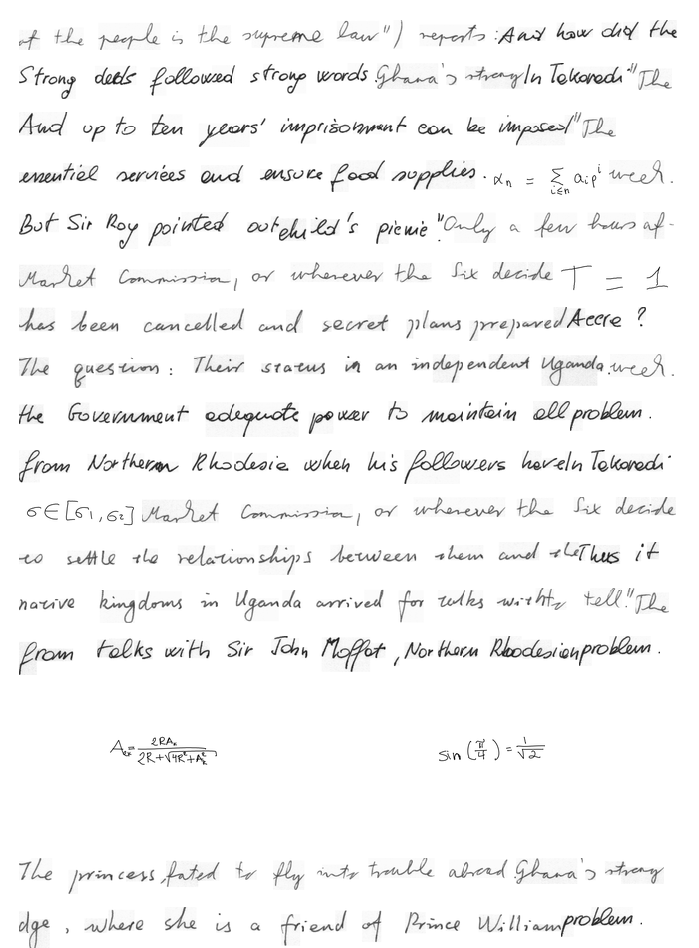 of the people is the supreme law") reports: And how did the
Strong deeds followed strong words. Ghana's strong In Takoradi "The
And up to ten years' imprisonment can be imposed "The
essential services and ensure food supplies. αₙ = Σ_{i∈n} aᵢpⁱ week.
But Sir Roy pointed out child's picnic "Only a few hours af-
Market Commission, or wherever the Six decide T = 1
has been cancelled and secret plans prepared Accra ?
The question: Their status in an independent Uganda. week.
the Government adequate power to maintain all problem.
from Northern Rhodesia when his followers have In Takoradi
σ∈[σ₁,σ₂] Market Commission, or wherever the Six decide
to settle the relationships between them and the Thus it
native kingdoms in Uganda arrived for talks with to tell." The
from talks with Sir John Moffat, Northern Rhodesian problem.
= 2RAₓ / (2R+√(4R²+Aₓ²)) sin(π/4) = 1/√2
The princess, fated to fly into trouble abroad Ghana's strong
dge, where she is a friend of Prince William problem.